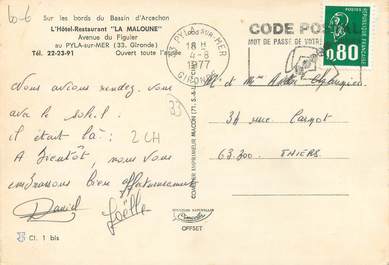 60-6
Sur les bords du Bassin d'Arcachon
L'Hôtel-Restaurant "LA MALOUNE"
Avenue du Figuier
au PYLA-sur-MER (33. Gironde)
Tél. 22-23-91 Ouvert toute l'année
33 PYLA-SUR-MER
18 H
4-8
1977
GIRONDE
CODE POSTAL
MOT DE PASSE DE VOTRE
POSTES
0,80
Nous avions rendez-vous
avec le soleil
il était là :
A Bientôt, nous vous
embrassons bien affectueusement
Daniel Joëlle
33
2 CH
COMBIER IMPRIMEUR MACON (71. S.-&-L.)
M. et Mme
34 rue Carnot
63.300 THIERS
OFFSET
Cl. 1 bis